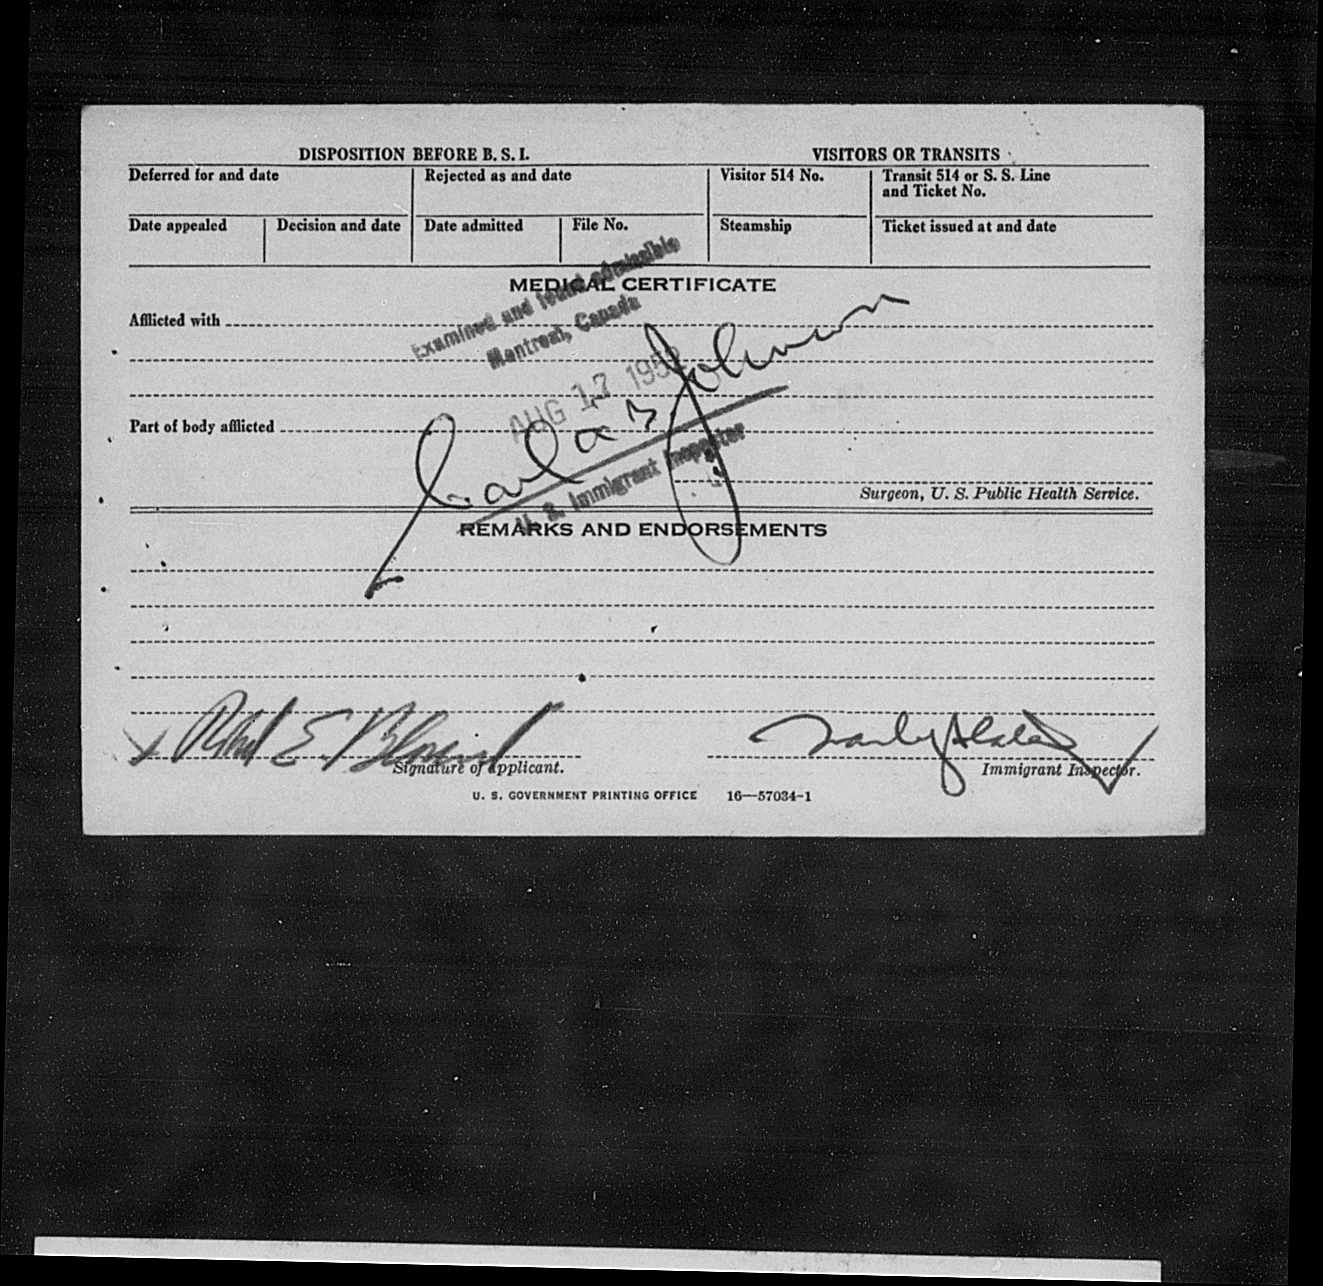 DISPOSITION BEFORE B. S. I.
VISITORS OR TRANSITS
Deferred for and date
Rejected as and date
Visitor 514 No.
Transit 514 or S. S. Line
and Ticket No.
Date appealed
Decision and date
Date admitted
File No.
Steamship
Ticket issued at and date
MEDICAL CERTIFICATE
Examined and found admissible
Montreal, Canada
Afflicted with
AUG 17 195
Johnson
Part of body afflicted
U. S. Immigrant Inspector
Surgeon, U. S. Public Health Service.
REMARKS AND ENDORSEMENTS
E.
Signature of applicant.
Immigrant Inspector.
U. S. GOVERNMENT PRINTING OFFICE 16—57034-1